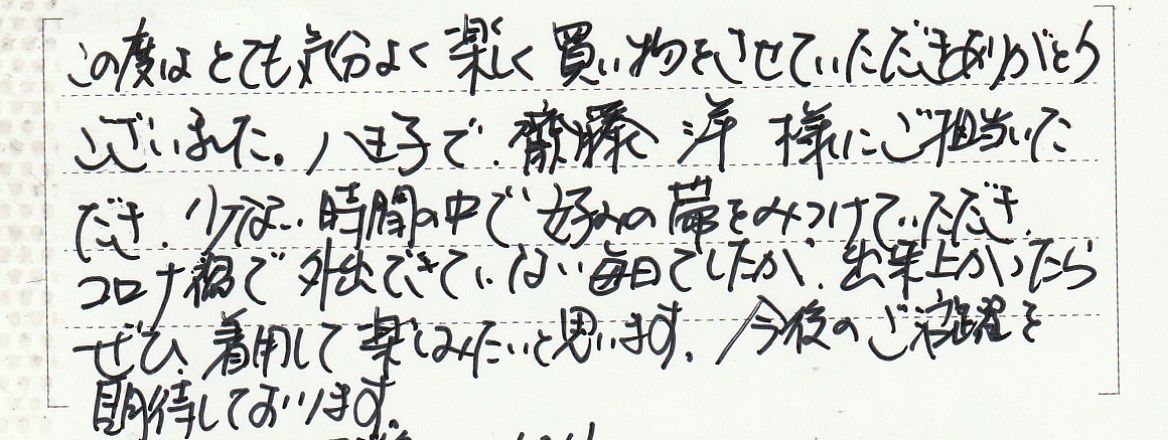 この度はとても気分よく楽しく買い物をさせていただきありがとう
ございました。八王子で、齋藤 洋 様にご担当いた
だき、少ない時間の中で好みの帯をみつけていただき、
コロナ禍で外出できていない毎日でしたが、出来上がったら
ぜひ、着用して楽しみたいと思います。今後のご活躍を
期待しております。